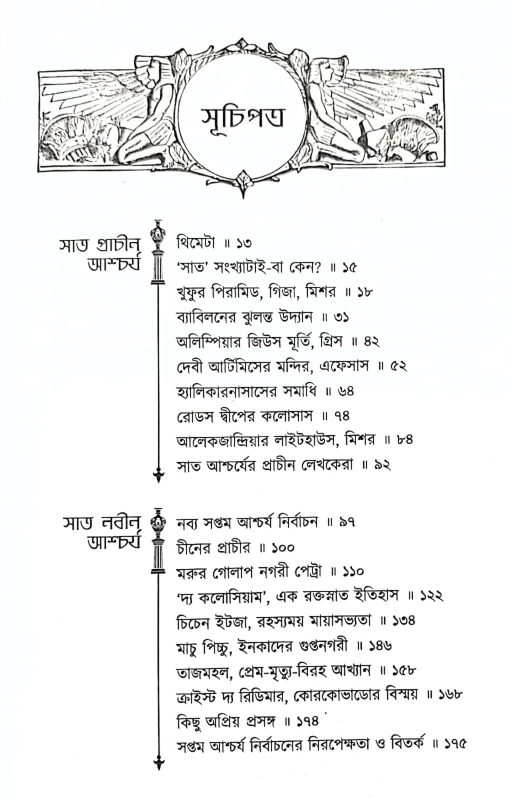 সূচিপত্র
সাত প্রাচীন
আশ্চর্য
থিমেটা ॥ ১৩
‘সাত’ সংখ্যাটাই-বা কেন? ॥ ১৫
খুফুর পিরামিড, গিজা, মিশর ॥ ১৮
ব্যাবিলনের ঝুলন্ত উদ্যান ॥ ৩১
অলিম্পিয়ার জিউস মূর্তি, গ্রিস ॥ ৪২
দেবী আর্টিমিসের মন্দির, এফেসাস ॥ ৫২
হ্যালিকারনাসাসের সমাধি ॥ ৬৪
রোডস দ্বীপের কলোসাস ॥ ৭৪
আলেকজান্দ্রিয়ার লাইটহাউস, মিশর ॥ ৮৪
সাত আশ্চর্যের প্রাচীন লেখকেরা ॥ ৯২
সাত নবীন
আশ্চর্য
নব্য সপ্তম আশ্চর্য নির্বাচন ॥ ৯৭
চীনের প্রাচীর ॥ ১০০
মরুর গোলাপ নগরী পেট্রা ॥ ১১০
‘দ্য কলোসিয়াম’, এক রক্তস্নাত ইতিহাস ॥ ১২২
চিচেন ইটজা, রহস্যময় মায়াসভ্যতা ॥ ১৩৪
মাচু পিচ্চু, ইনকাদের গুপ্তনগরী ॥ ১৪৬
তাজমহল, প্রেম-মৃত্যু-বিরহ আখ্যান ॥ ১৫৮
ক্রাইস্ট দ্য রিডিমার, কোরকোভাডোর বিস্ময় ॥ ১৬৮
কিছু অপ্রিয় প্রসঙ্গ ॥ ১৭৪
সপ্তম আশ্চর্য নির্বাচনের নিরপেক্ষতা ও বিতর্ক ॥ ১৭৫